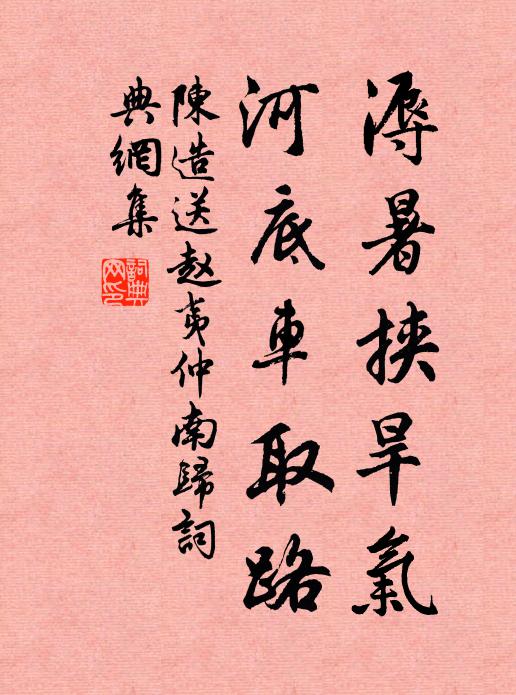 溽暑挾旱氣
河底車取路
陳造送赵夷仲南歸詞
典網集
詞典網印